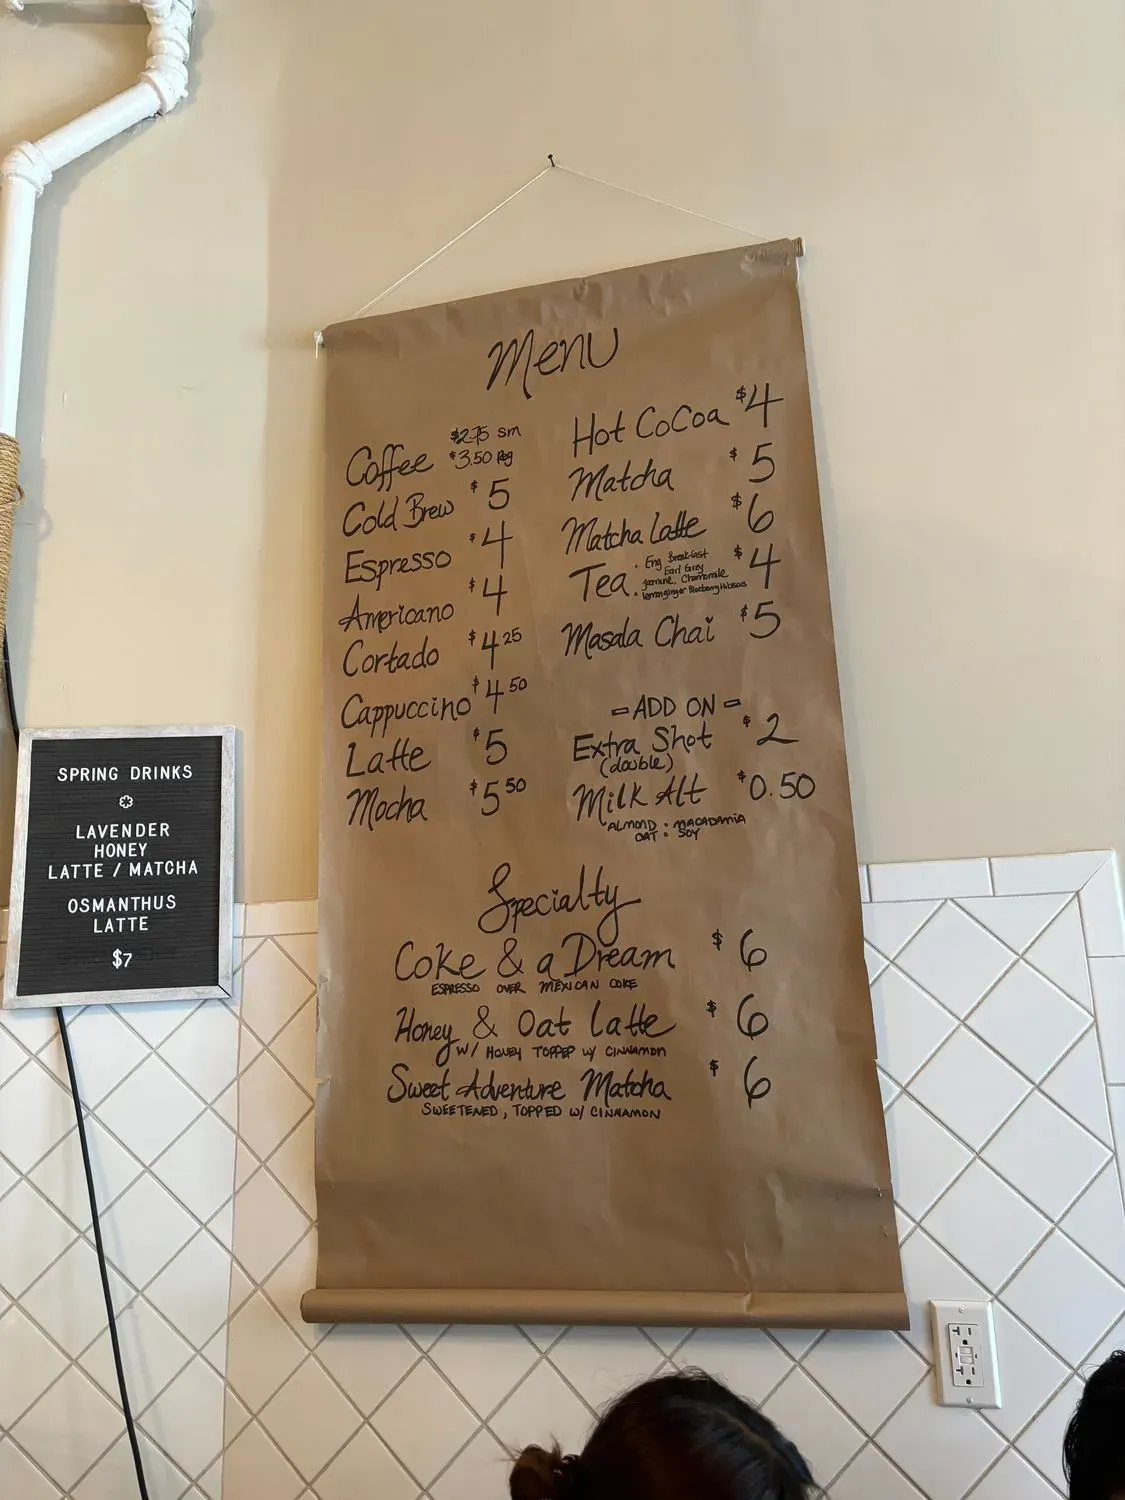 Menu
Coffee $2.75 sm
$3.50 reg
Cold Brew $5
Espresso $4
Americano $4
Cortado $4.25
Cappuccino $4.50
Latte $5
Mocha $5.50
Hot Cocoa $4
Matcha $5
Matcha Latte $6
Tea $4
• Eng Breakfast
Earl Grey
Jasmine, Chamomile
• lemon ginger Blueberry Hibiscus
Masala Chai $5
- ADD ON -
Extra Shot $2
(double)
Milk Alt $0.50
ALMOND : MACADAMIA
OAT : SOY
Specialty
Coke & a Dream $6
ESPRESSO OVER MEXICAN COKE
Honey & Oat Latte $6
W/ HONEY TOPPED W/ CINNAMON
Sweet Adventure Matcha $6
SWEETENED, TOPPED W/ CINNAMON
SPRING DRINKS
LAVENDER
HONEY
LATTE / MATCHA
OSMANTHUS
LATTE
$7